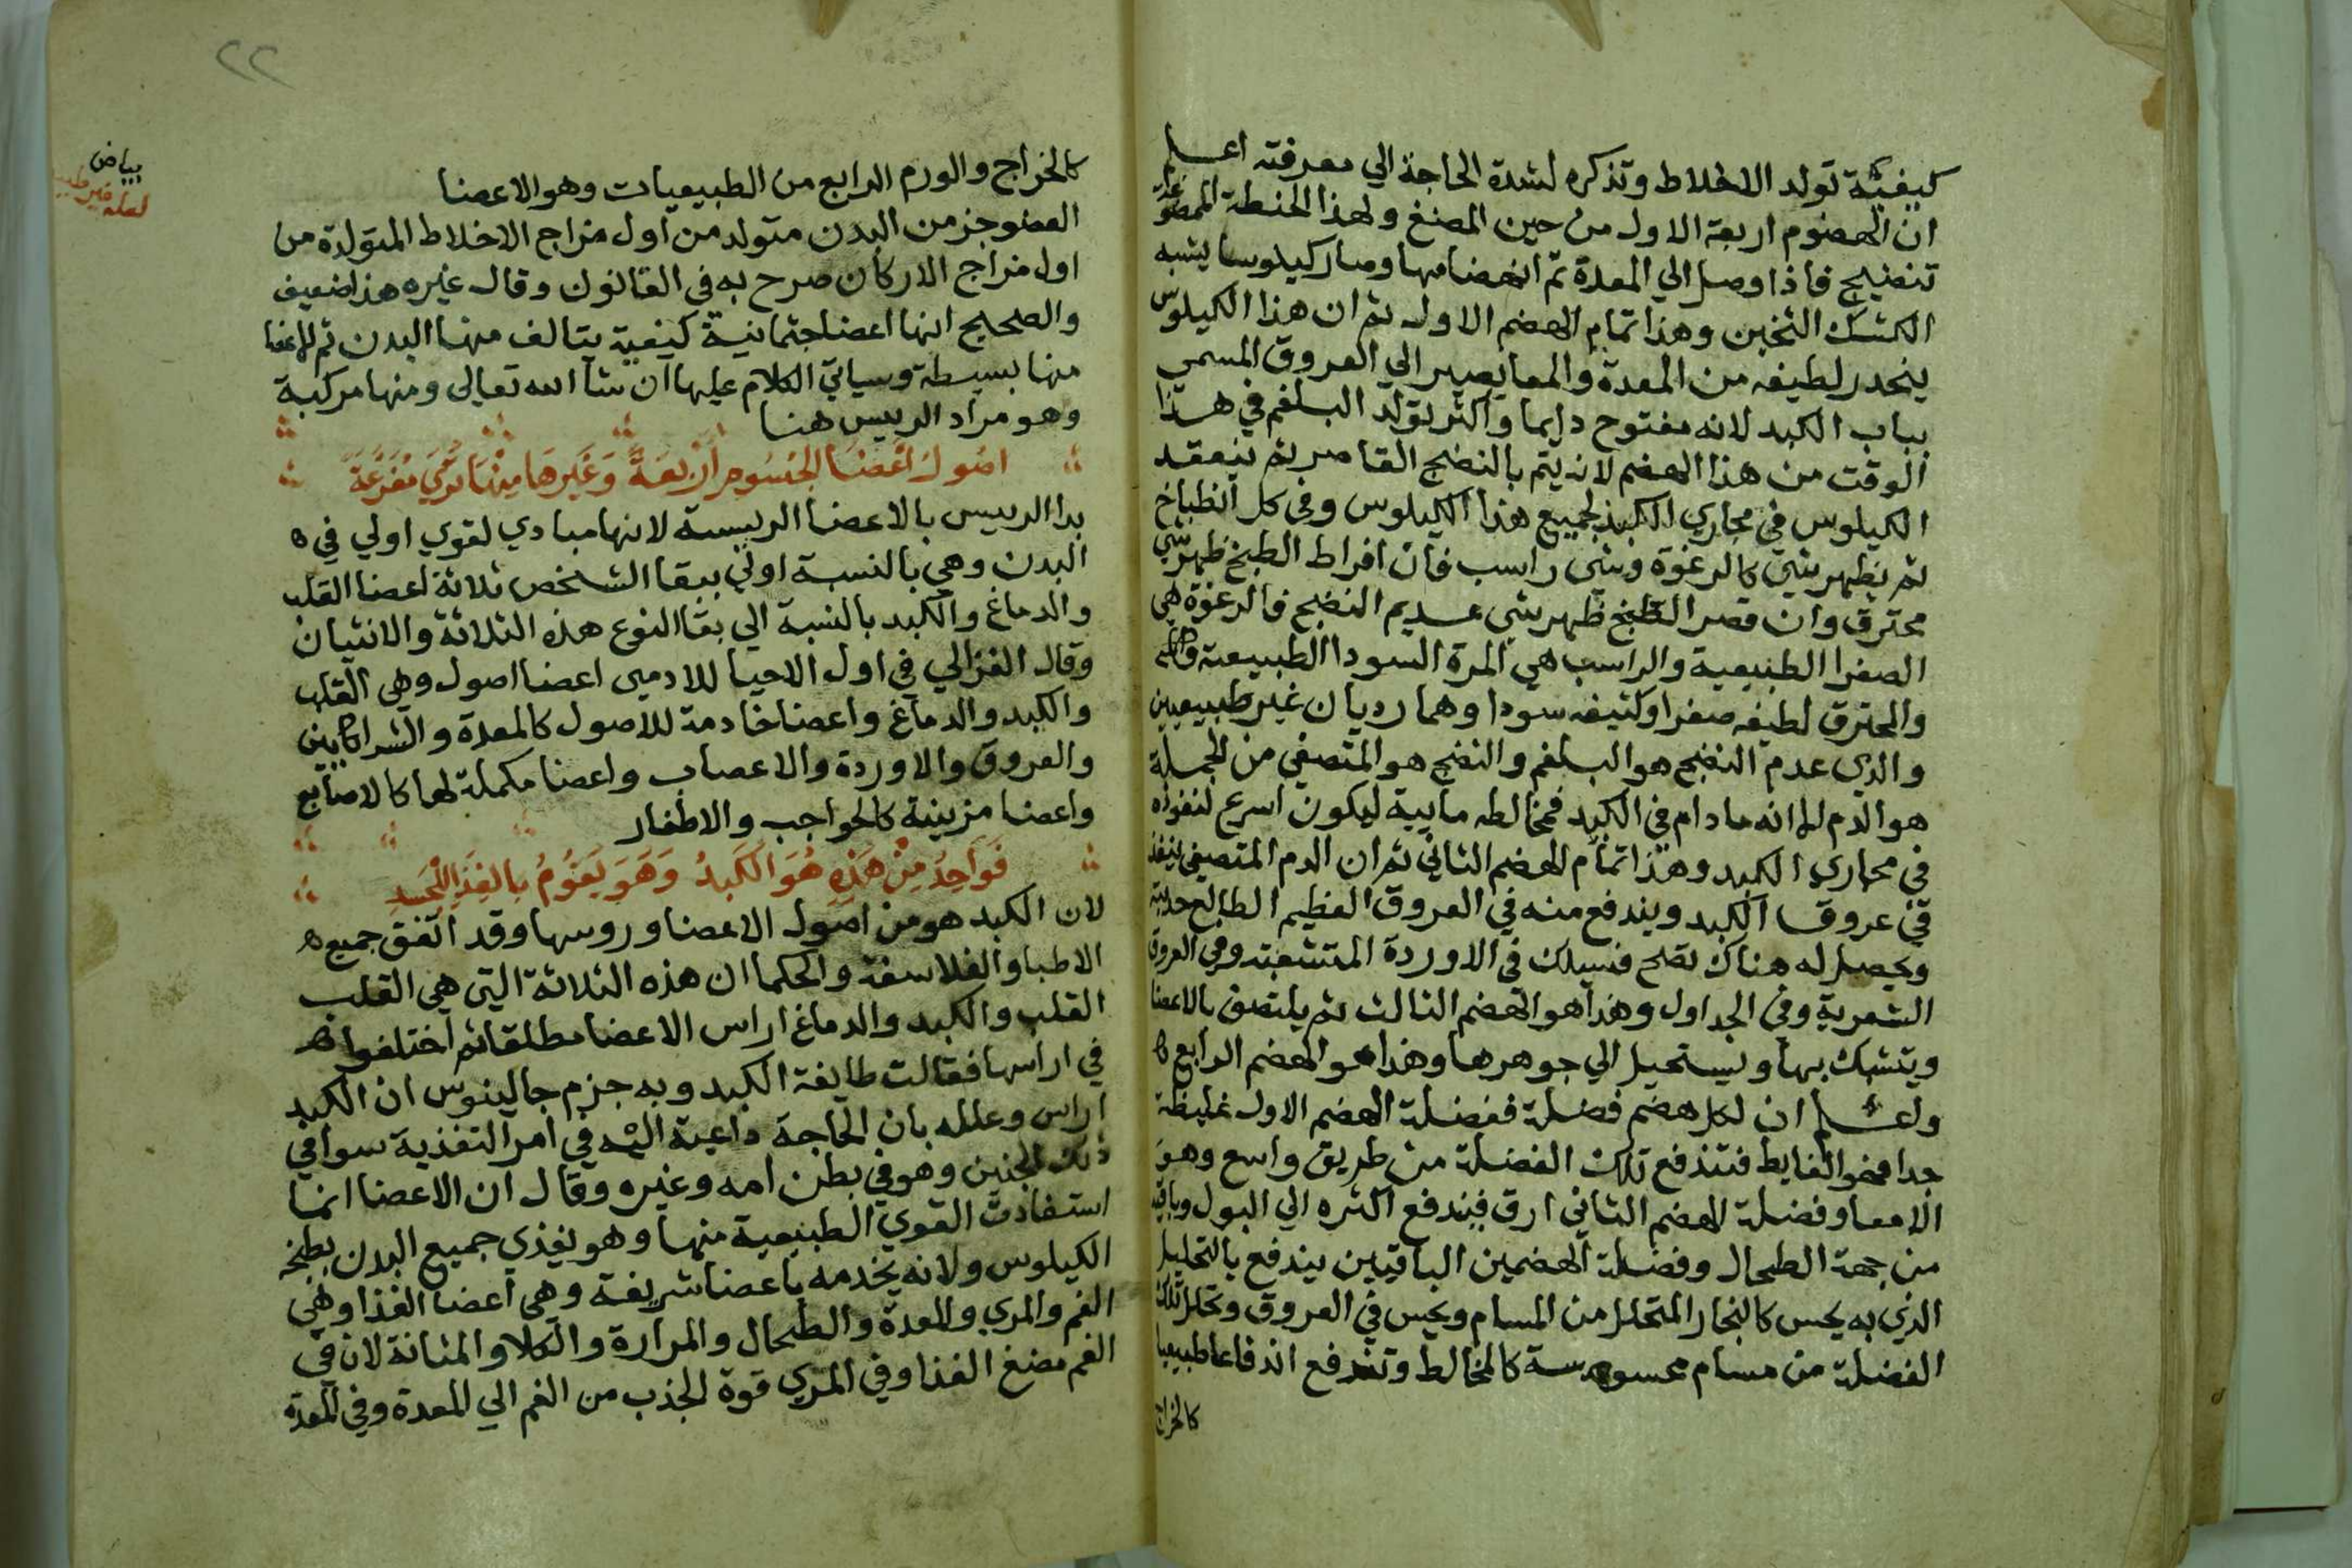 كيفيّة تولد الاخلاط وتذكره لشدة الحاجة الي معرفته اعلم
ان الهضوم اربعة الاول من حين المضغ ولهذا الحنطة الممضو
تنضيج فاذا وصل الي المعدة تمّ انهضامها وصار كيلوسا يشبه
الكشك الثخين وهذا تمام الهضم الاول ثم ان هذا الكيلوس
ينحدر لطيفه من المعدة والمعا يصير الي العروق المسمي
بباب الكبد لانه مفتوح دايما واكثر تولد البلغم في هذا
الوقت من هذا الهضم لانه يتم بالنضج القاصر ثم ينعقد
الكيلوس في مجاري الكبد لجميع هذا الكيلوس وفي كل انطباخ
ثم يظهر شي كالرغوة وشي راسب فان افراط الطبخ ظهر شي
محترق وان قصر الطبخ ظهر شي عديم النضج فالرغوة هي
الصفرا الطبيعية والراسب هي المرة السودا الطبيعية
والمحترق لطيفه صفرا وكثيفه سودا وهما رديان غير طبيعيين
والذي عدم النضج هو البلغم والنضج هو المتصفي من الجملة
هو الدم الا انه ما دام في الكبد فمخالطه مايية ليكون اسرع لنفوذه
في مجاري الكبد وهذا تمام الهضم الثاني ثم ان الدم المتصفي ينفذ
في عروق الكبد ويندفع منه في العروق العظيم الطالع حدبته
ويحصل له هناك نضج فيسلك في الاوردة المتشعبة وفي العروق
الشعرية وفي الجداول وهذا هو الهضم الثالث ثم يلتصق بالاعضا
ويتشبك بها ويستحيل الي جوهرها وهذا هو الهضم الرابع ه
واعلم ان لكل هضم فضلة ففضلة الهضم الاول غليظة
جدا فهو الغايط فتندفع تلك الفضلة من طريق واسع وهو
الامعا وفضلة الهضم الثاني ارق فيندفع اكثره الي البول وباقيه
من جهة الطحال وفضلة الهضمين الباقيين يندفع بالتحليل
الذي به يحس كالبخار المتحلل من المسام ويحس في العروق وتحلل تلك
الفضلة من مسام محسوسة كالمخالط وتندفع اندفاعا طبيعيا
كالخراج
٢٢
بياض
لعله غير طبيعيا
كالخراج والورم الرابع من الطبيعيات وهو الاعضا
العضو جز من البدن متولد من اول مزاج الاخلاط المتولدة من
اول مزاج الاركان صرح به في القانون وقال غيره هذا ضعيف
والصحيح انها اعضا جثمانية كيفية يتالف منها البدن ثم الاعضا
منها بسيطة وسياتي الكلام عليها ان شا الله تعالى ومنها مركبة
وهو مراد الرييس هنا
اصُولُ اَعْضَا الجُسُومِ اَرْبَعَةٌ وَغَيْرهَا مِنْهَا تُرَي مُفَرَّعَةً
بدا الرييس بالاعضا الرييسة لانها مبادي لقوي اولي في ه
البدن وهي بالنسبة اولي ببقا الشخص ثلاثة اعضا القلب
والدماغ والكبد بالنسبة الي بقا النوع هذه الثلاثة والانثيان
وقال الغزالي في اول الاحيا للادمي اعضا اصول وهي القلب
والكبد والدماغ واعضا خادمة للاصول كالمعدة والشرايين
والعروق والاوردة والاعصاب واعضا مكملة لها كالاصابع
واعضا مزينة كالحواجب والاظفار
فَوَاحِدُ مِنْ هَذِهِ هُوَ الكَبِدُ وَهَوَ يَقُوُمُ بِالغِذَا لِلْجَسَدِ
لان الكبد هو من اصول الاعضا وروسها وقد اتفق جميع ه
الاطبا والفلاسفة والحكما ان هذه الثلاثة التي هي القلب
القلب والكبد والدماغ اراس الاعضا مطلقا ثم اختلفوا ه
في اراسها فقالت طايفة الكبد وبه جزم جالينوس ان الكبد
اراس وعلله بان الحاجة داعية اليه في امر التغذية سوا في
ذلك الجنين وهو في بطن امه وغيره وقال ان الاعضا انما
استفادت القوي الطبيعية منها وهو يغذي جميع البدن بطبخه
الكيلوس ولانه يخدمه باعضا شريفة وهي اعضا الغذا وهي
الفم والمري والمعدة والطحال والمرارة والكلا والمثانة لان في
الفم مضغ الغذا وفي المري قوة الجذب من الفم الي المعدة وفي المعدة